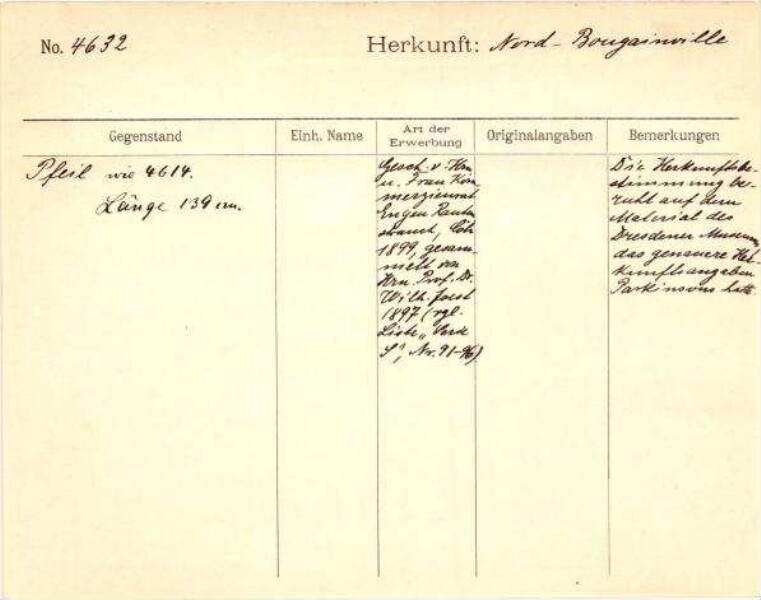 No. 4632
Herkunft: Nord-Bougainville
Gegenstand
Einh. Name
Art der
Erwerbung
Originalangaben
Bemerkungen
Pfeil wie 4614.
Länge 139 cm.
Gesch. v. Hrn
u. Frau Kom-
merzienrat
Eugen Rauten
strauch, Cöln
1899, gesam-
melt von
Hrn. Prof. Dr.
Wilh. Joest
1897 (vgl.
Liste
S", Nr. 91-96)
Die Herkunftsbe-
stimmung be-
ruht auf dem
Material des
Dresdener Museums,
das genauere Her-
kunftsangaben
Parkinsons hatte.